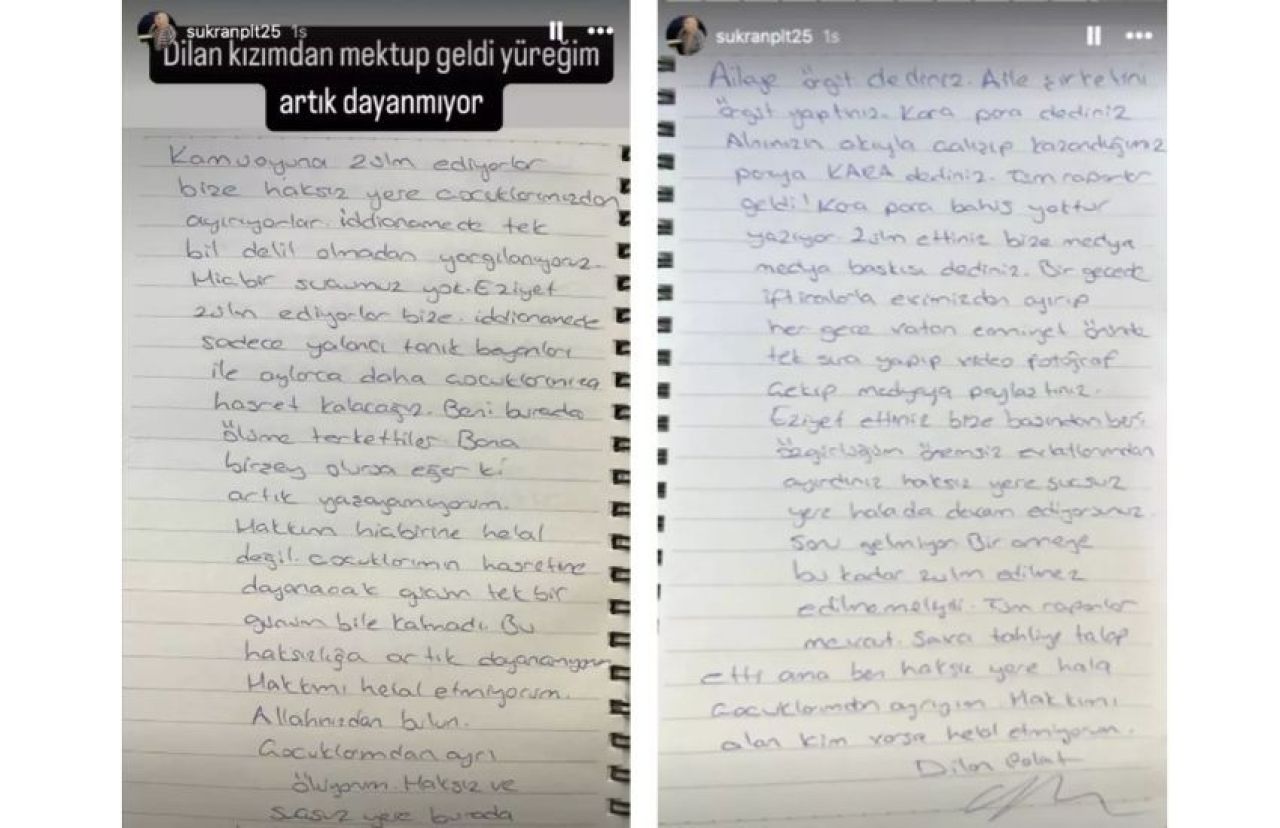 sukranplt25 1s
Dilan kızımdan mektup geldi yüreğim
artık dayanmıyor
Kamuoyuna zulm ediyorlar
bize haksız yere çocuklarımızdan
ayırıyorlar. iddianamede tek
bil delil olmadan yargılanıyoruz.
Hiçbir suçumuz yok. Eziyet
zulm ediyorlar bize. iddianamede
sadece yalancı tanık beyanları
ile aylarca daha çocuklarımıza
hasret kalacağız. Beni burada
ölüme terkettiler Bana
birşey olursa eğer ki
artık yazayamıyorum.
Hakkım hiçbirine helal
değil. Çocuklarımın hasretine
dayanacak gücüm tek bir
günüm bile kalmadı. Bu
haksızlığa artık dayanamıyorum
Hakkımı helal etmiyorum.
Allahınızdan bulun.
Çocuklarımdan ayrı
ölüyorum. Haksız ve
suçsuz yere burada
sukranplt25 1s
Aileye örgüt dediniz. Aile şirketini
örgüt yaptınız. Kara para dediniz
Alnımızın akıyla çalışıp kazandığımız
paraya KARA dediniz. Tüm raporlar
geldi! Kara para bahis yoktur
yazıyor. Zulm ettiniz bize medya
medya baskısı dediniz. Bir gecede
iftiralarla evimizden ayırıp
her gece vatan emniyet önünde
tek sıra yapıp video fotoğraf
Çekip medyaya paylaştınız.
Eziyet ettiniz bize başından beri
özgürlüğüm önemsiz evlatlarımdan
ayırdınız haksız yere suçsuz
yere halada devam ediyorsunuz.
Sonu gelmiyor Bir anneye
bu kadar zulm edilmez
edilmemeliydi. Tüm raporlar
mevcut. Savcı tahliye talep
etti ama ben haksız yere hala
Çocuklarımdan ayrıyım. Hakkımı
alan kim varsa helal etmiyorum.
Dilan Polat